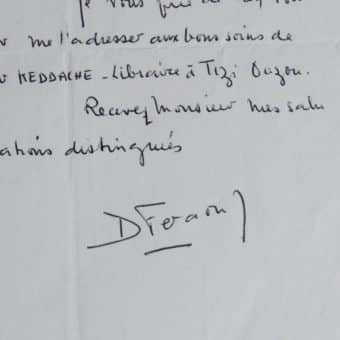 Je vous prie de
me l'adresser aux bons soins de
KEDDACHE - Libraire à Tizi Ouzou.
Recevez Monsieur mes salu
ations distinguées
DFeraoun